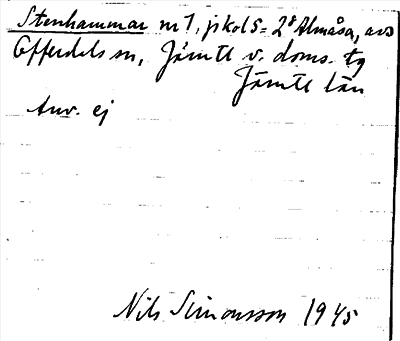 Stenhammar nr 1, jskol S = 2⁸ Almåsa, avs
Offerdals sn, Jämtl v. doms. tg
Jämtl län
Anv. ej
Nils Simonsson 1945